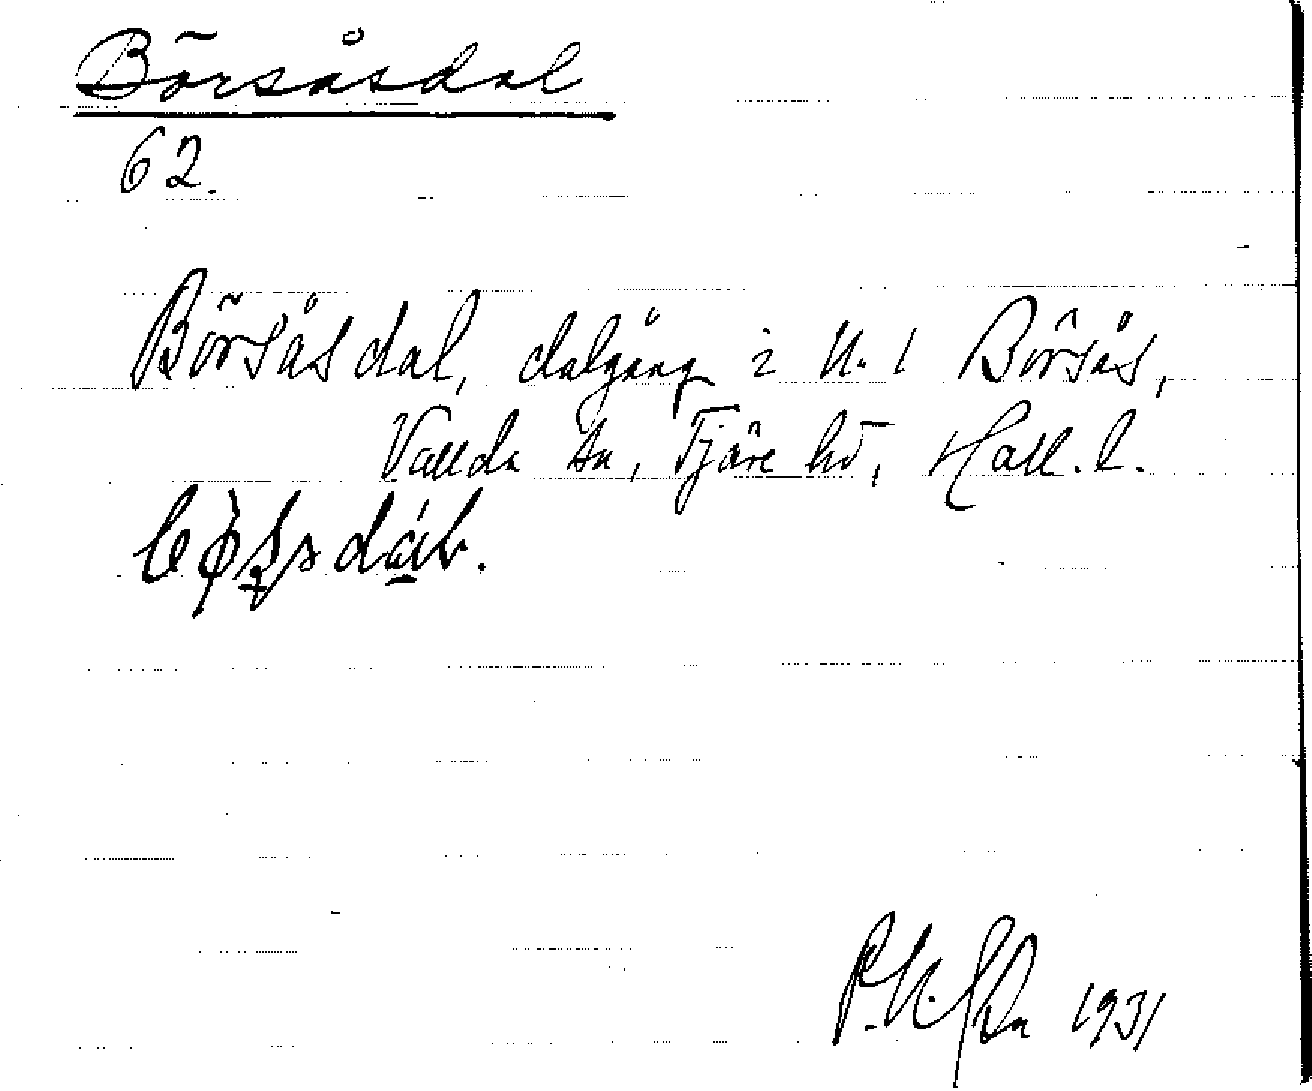 Börsåsdal
62.
Börsåsdal, dalgång i N. l Börsås,
Vallda sn, Fjäre hd, Hall. l.
1931